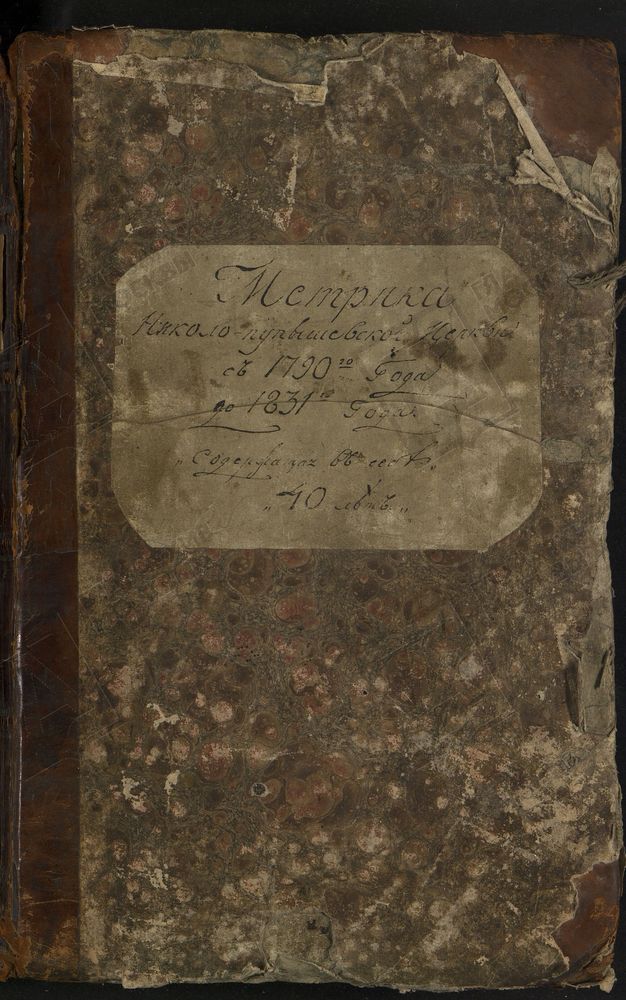 Метрика
Николо-пупышевской Церкви
съ 1790 го Года
до 1831 го Года
„Содержащая въ себѣ„
„40 лѣтъ„